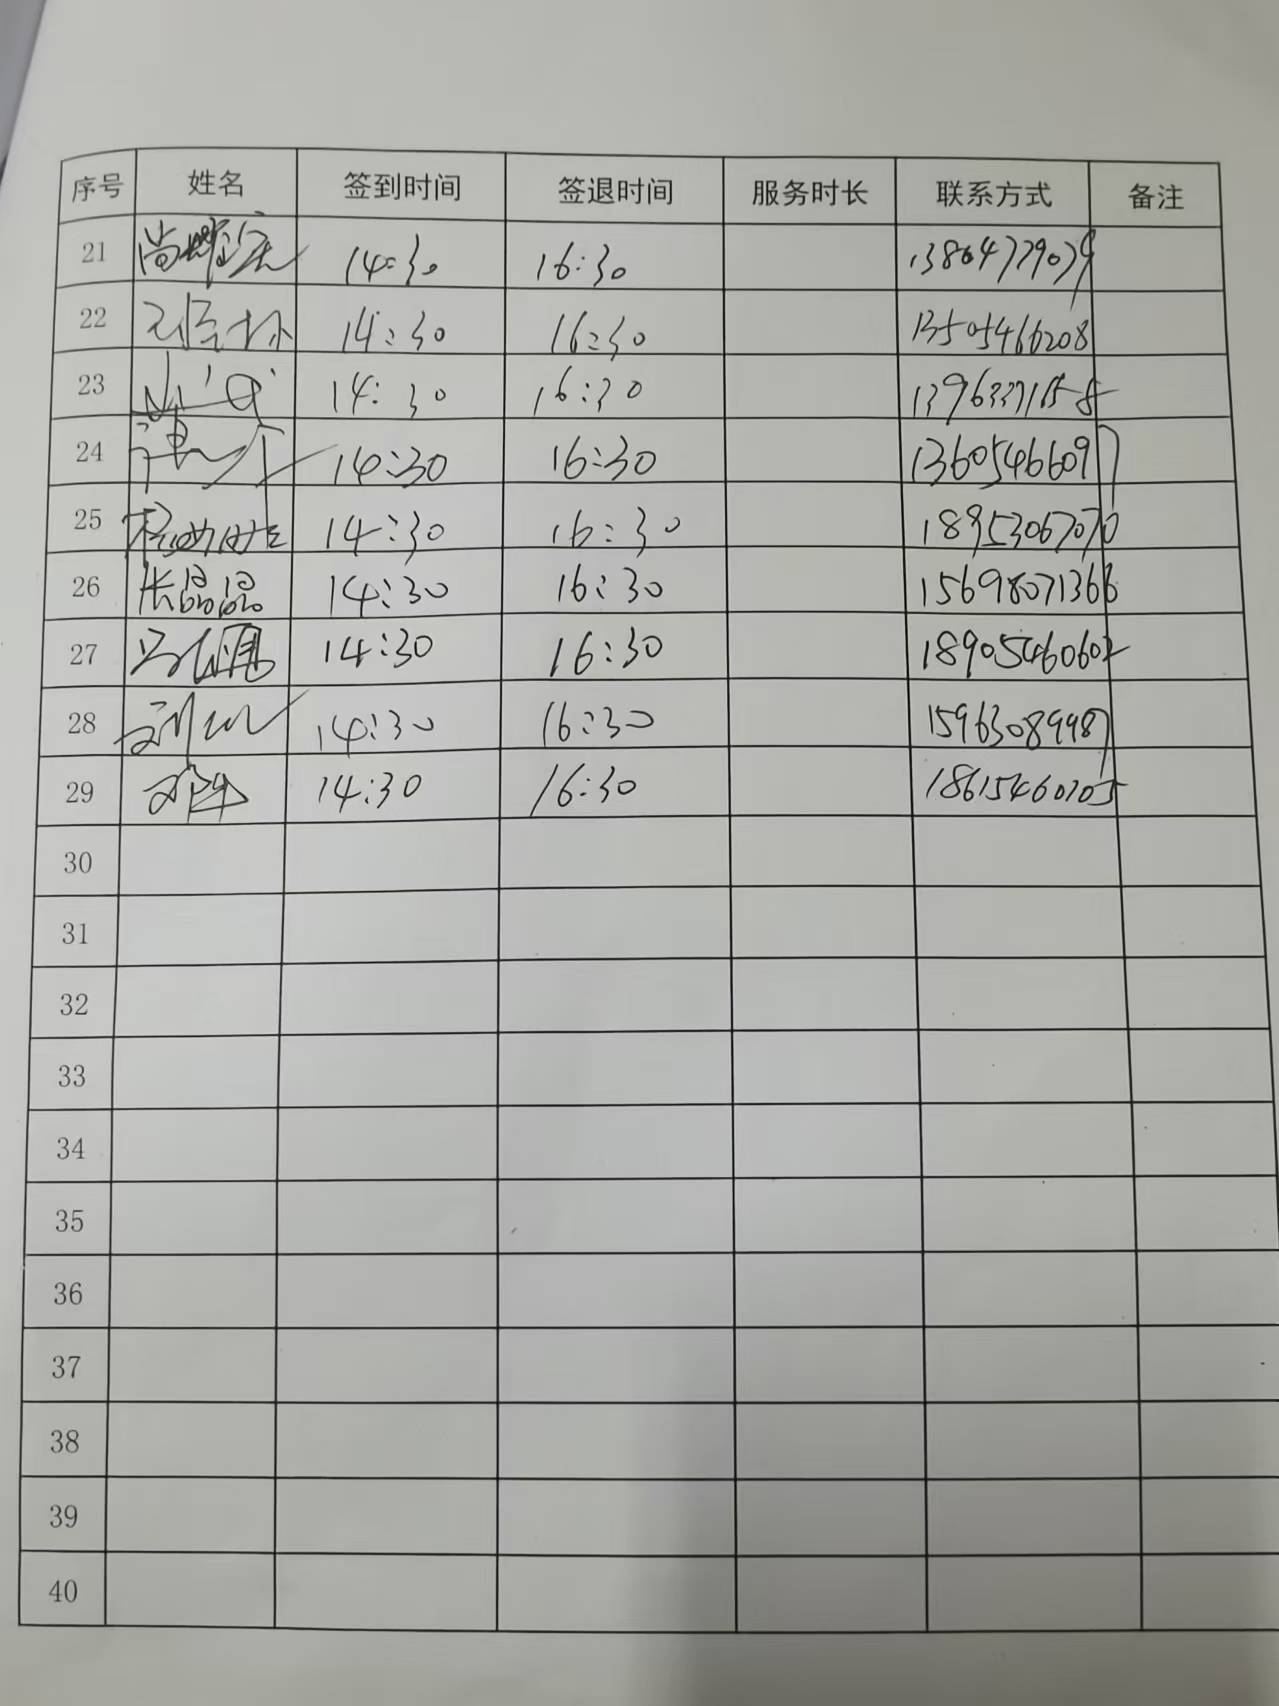 序号 姓名 签到时间 签退时间 服务时长 联系方式 备注
21 14:30 16:30 13864779079
22 14:30 16:30 13505466208
23 14:30 16:30
24 14:30 16:30 13605466097
25 14:30 16:30 18953067070
26 张晶晶 14:30 16:30 15698071366
27 14:30 16:30 18905460602
28 14:30 16:30 15963089987
29 14:30 16:30 18615460705
30
31
32
33
34
35
36
37
38
39
40